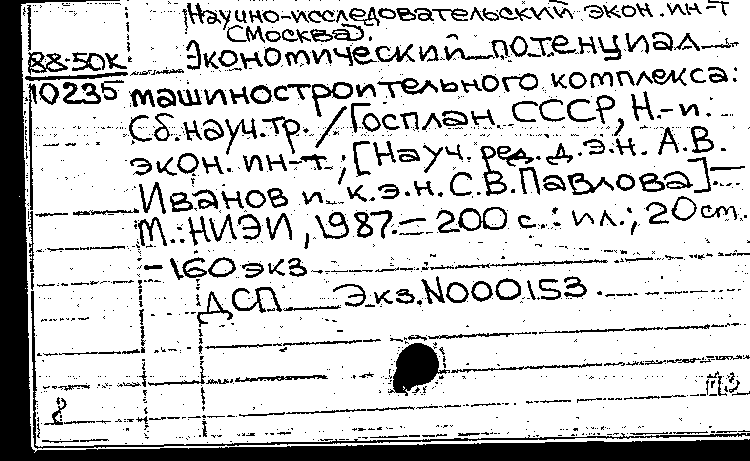 Научно-исследовательский экон. ин-т
(Москва).
88-50к Экономический потенциал
10235 машиностроительного комплекса:
Сб. науч. тр. / Госплан СССР, Н.-и.
экон. ин-т ; [Науч. ред. д.э.н. А.В.
Иванов и к.э.н. С.В. Павлова] -
М.: НИЭИ, 1987. - 200 с. : ил. ; 20 см.
- 160 экз
ДСП Экз. N000153.
8